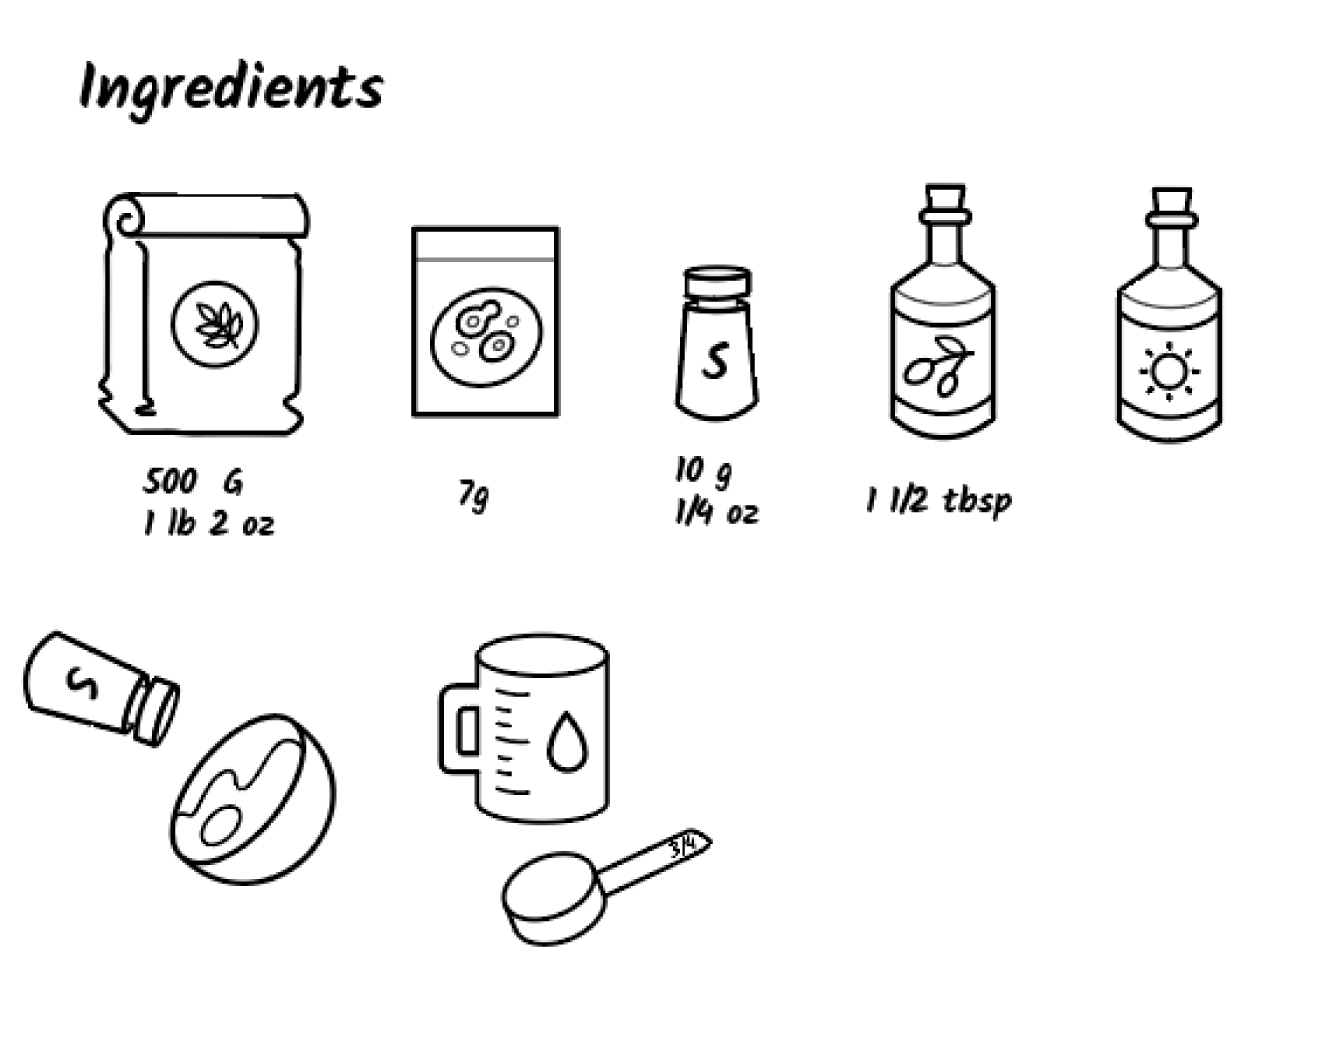 Ingredients
S
500 G
1 lb 2 oz
7g
10 g
1/4 oz
1 1/2 tbsp
S
3/4